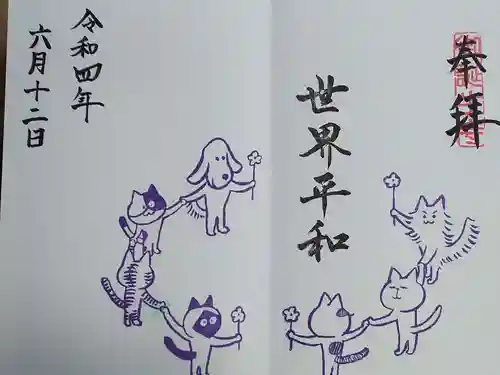 奉拝
世界平和
令和四年
六月十二日